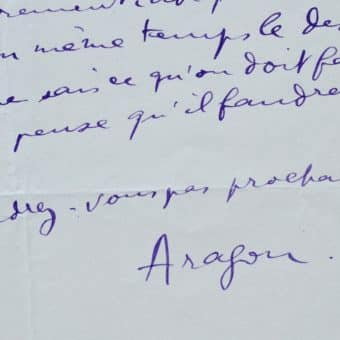 n même temps le des
e sais ce qu'on doit fa
pense qu'il faudra
drez-vous pas procha
Aragon.